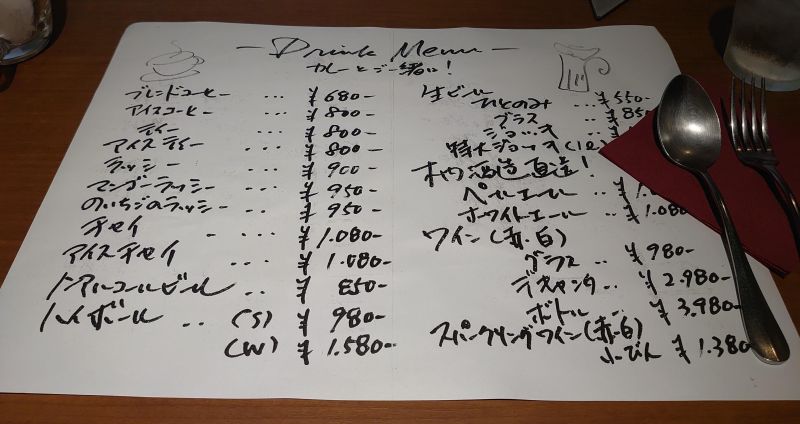 - Drink Menu -
カレーとご一緒に!
ブレンドコーヒー ... ¥680-
アイスコーヒー ... ¥800-
ティー ... ¥800-
アイスティー ... ¥800-
ラッシー ... ¥900-
マンゴーラッシー ... ¥950-
のいちごのラッシー .. ¥950-
チャイ - ... ¥1.080-
アイスチャイ ... ¥1.080-
ノンアルコールビール .. ¥850-
ハイボール .. (S) ¥980-
(W) ¥1.580-
生ビール
ひとのみ ... ¥550-
グラス .. ¥850-
ジョッキ ..
特大ジョッキ(1ℓ)
直送!
ペールエール .. ¥1.0
ホワイトエール .. ¥1.080
ワイン(赤.白)
グラス .. ¥980-
デキャンタ.. ¥2.980-
ボトル .. ¥3.980-
スパークリングワイン(赤.白)
小びん ¥1.380